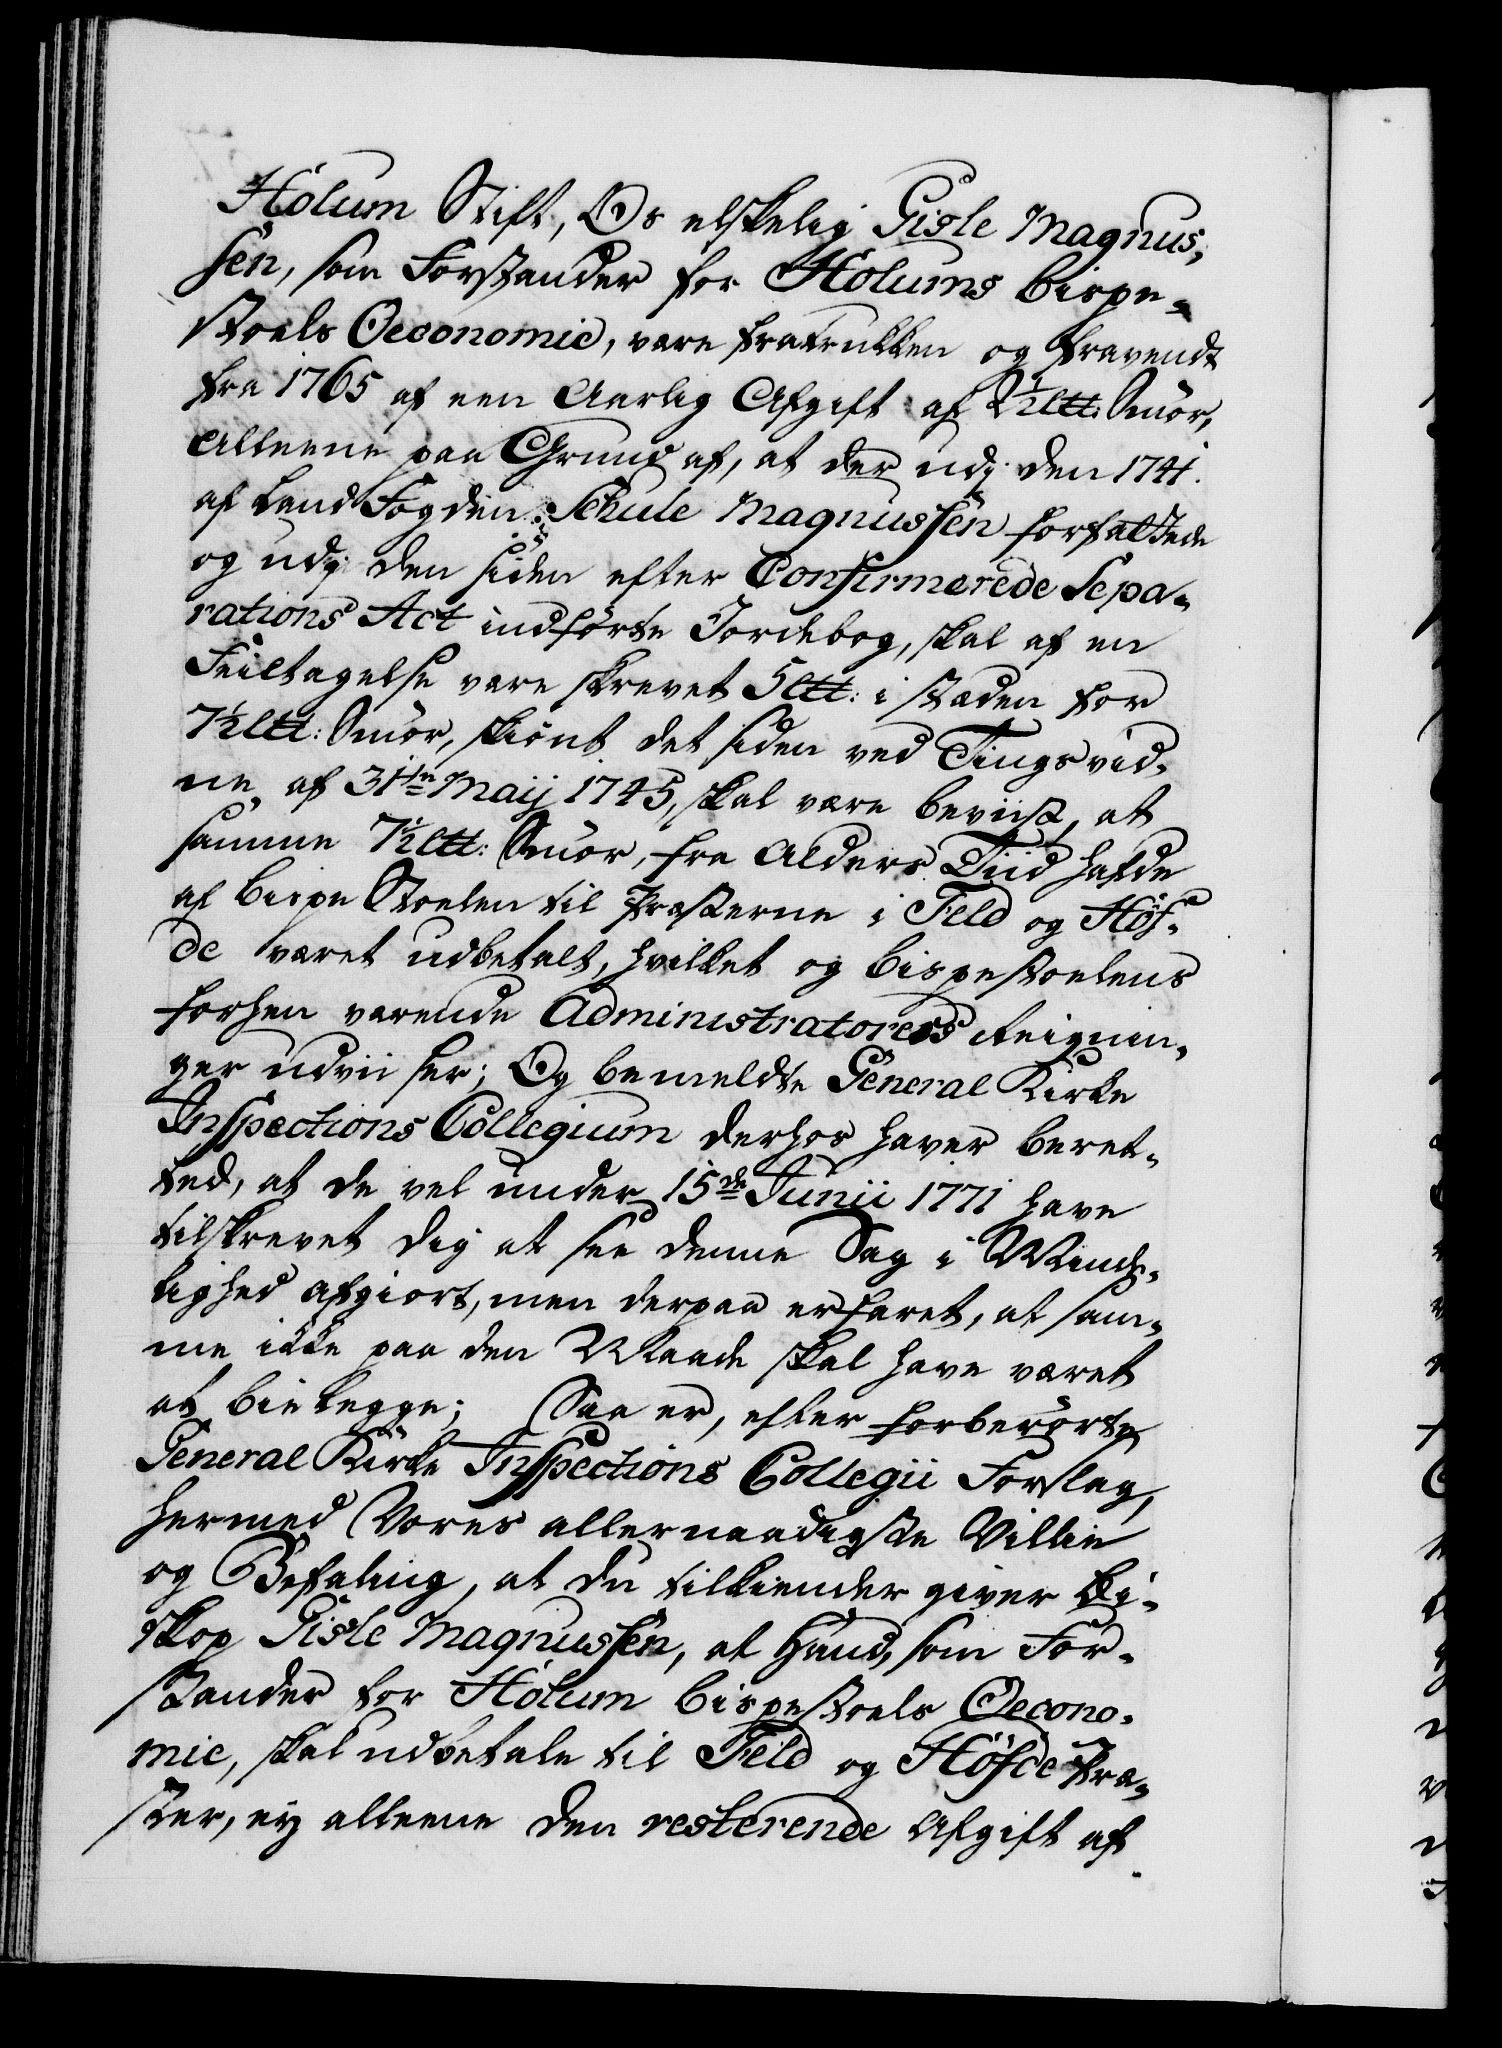 Holum Stift, Os elskelig Gisle Magnus-
sen, som Forstander for Holums Bispe-
stoels Oeconomie, være fratrukken og fravendt
fra 1765 af een Aarlig Afgift af 2½ l℔: Smör,
alleene paa Grund af, at der udj den 1741.
af Land Fogden Schule Magnussen forfattede
og udj den siden efter Confirmerede Sepa-
rations Act indförte Jordebog, skal af en
Feiltagelse være skrevet 5 l℔: i stæden for
7½ l℔: Smör, skiönt det siden ved Tingsvid-
ne af 31te Maij 1745, skal være beviist, at
samme 7½ l℔: Smör, fra Alders Tiid hafde
af Bispe Stoelen til Præsterne i Feld og Höf-
de været udbetalt, hvilket og Bispestoelens
forhen værende Administratorers Reignin-
ger udviiser; Og bemeldte General Kirke
Inspections Collegium derhos haver beret-
ted, at de vel under 15de Junii 1771 have
tilskrevet dig at see denne Sag i Mind-
lighed afgiort, men derpaa erfaret, at sam-
me ikke paa den Maade skal have været
at bielegge; Saa er, efter forberörte
General Kirke Inspections Collegii Forslag,
hermed Vores allernaadigste Villie
og Befaling, at du tilkiender giver Bi-
skop Gisle Magnussen, at Hand, som For-
stander for Holum Bispestoels Oecono-
mie, skal udbetale til Feld og Höfde Præ-
ster, ej alleene den resterende Afgift af